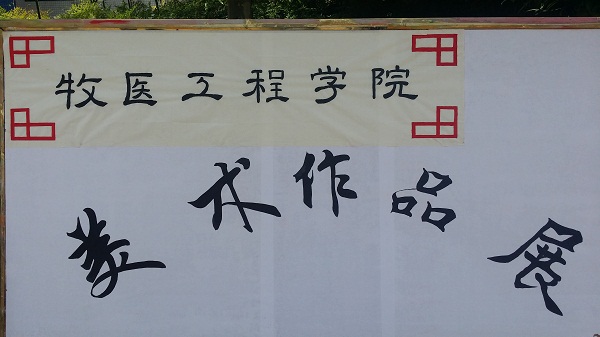 牧医工程学院
美术作品展